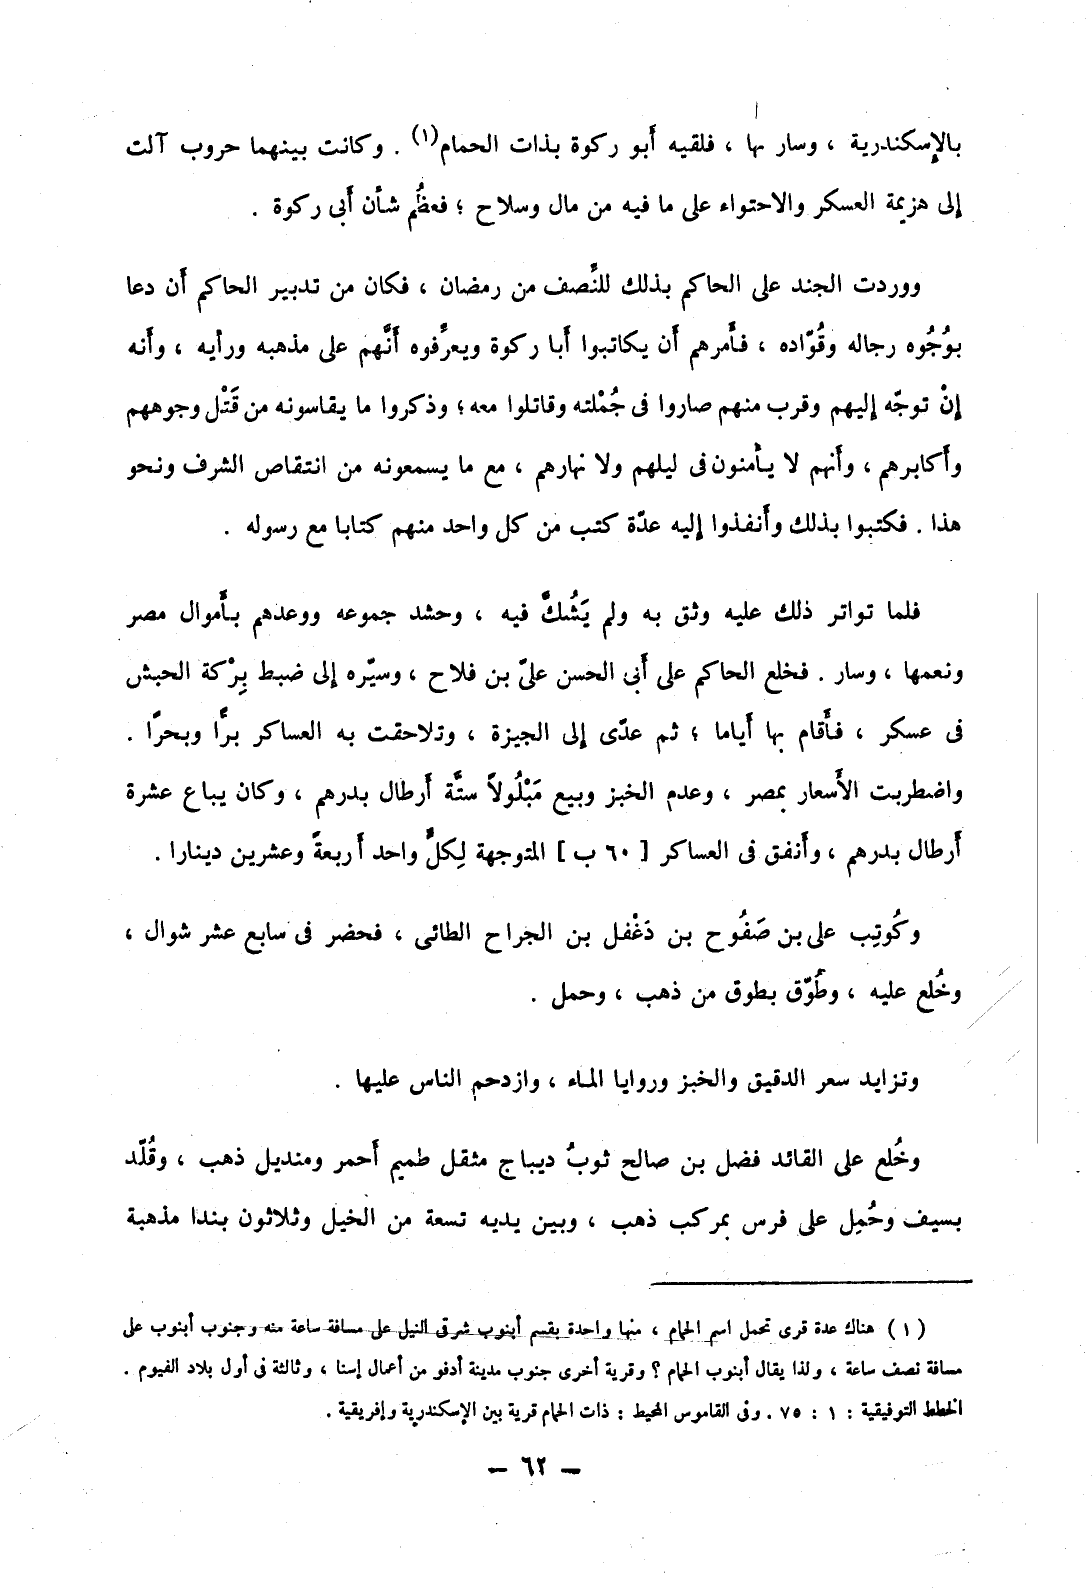 بالإسكندرية ، وسار بها ، فلقيه أبو ركوة بذات الحمام(١) . وكانت بينهما حروب آلت
إلى هزيمة العسكر والاحتواء على ما فيه من مال وسلاح ؛ فعظُم شأن أبى ركوة .
ووردت الجند على الحاكم بذلك للنِّصف من رمضان ، فكان من تدبير الحاكم أن دعا
بوُجُوه رجاله وقُوّاده ، فأمرهم أن يكاتبوا أبا ركوة ويعرِّفوه أنَّهم على مذهبه ورأيه ، وأنه
إنْ توجّه إليهم وقرب منهم صاروا فى جُمْلته وقاتلوا معه؛ وذكروا ما يقاسونه من قَتْل وجوههم
وأكابرهم ، وأنهم لا يأمنون فى ليلهم ولا نهارهم ، مع ما يسمعونه من انتقاص الشرف ونحو
هذا . فكتبوا بذلك وأنفذوا إليه عدّة كتب من كل واحد منهم كتابا مع رسوله .
فلما تواتر ذلك عليه وثق به ولم يَشُكَّ فيه ، وحشد جموعه ووعدهم بأموال مصر
ونعمها ، وسار . فخلع الحاكم على أبى الحسن علىّ بن فلاح ، وسيّره إلى ضبط بِرْكة الحبش
فى عسكر ، فأقام بها أياما ؛ ثم عدّى إلى الجيزة ، وتلاحقت به العساكر برًّا وبحرًا .
واضطربت الأسعار بمصر ، وعدم الخبز وبيع مَبْلُولاً ستَّة أرطال بدرهم ، وكان يباع عشرة
أرطال بدرهم ، وأنفق فى العساكر [ ٦٠ ب ] المتوجهة لِكلِّ واحد أربعةً وعشرين دينارا .
وكُوتِب على بن صَفُوح بن دَغْفل بن الجراح الطائى ، فحضر فى سابع عشر شوال ،
وخُلع عليه ، وطُوّق بطوق من ذهب ، وحمل .
وتزايد سعر الدقيق والخبز وروايا الماء ، وازدحم الناس عليها .
وخُلع على القائد فضل بن صالح ثوبُ ديباج مثقل طميم أحمر ومنديل ذهب ، وقُلّد
بسيف وحُمِل على فرس بمركب ذهب ، وبين يديه تسعة من الخيل وثلاثون بندا مذهبة
(١) هناك عدة قرى تحمل اسم الحمام ، منها واحدة بقسم أبنوب شرقى النيل على مسافة ساعة منه وجنوب أبنوب على
مسافة نصف ساعة ، ولذا يقال أبنوب الحمام ؟ وقرية أخرى جنوب مدينة أدفو من أعمال إسنا ، وثالثة فى أول بلاد الفيوم .
الخطط التوفيقية : ١ : ٧٥ . وفى القاموس المحيط : ذات الحمام قرية بين الإسكندرية وإفريقية .
— ٦٢ —